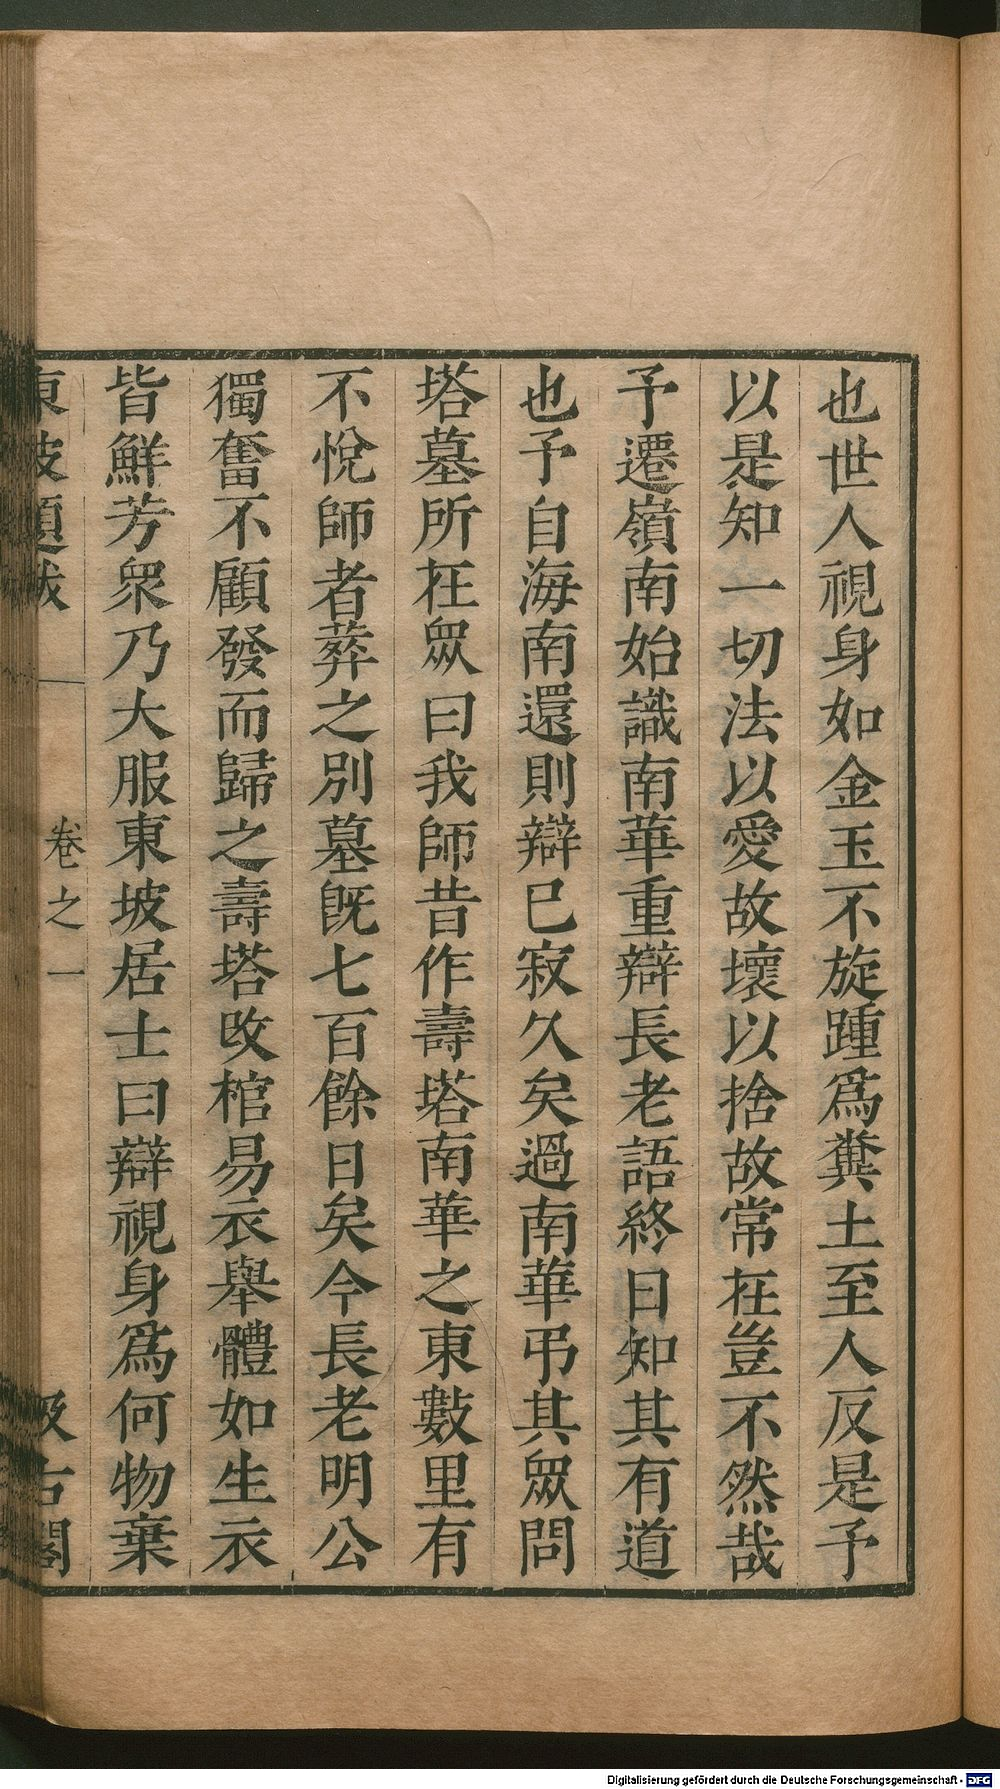 也世人視身如金玉不旋踵爲糞土至人反是予
以是知一切法以愛故壞以捨故常在豈不然哉
予遷嶺南始識南華重辯長老語終日知其有道
也予自海南還則辯巳寂久矣過南華弔其眾問
塔墓所在眾曰我師昔作壽塔南華之東數里有
不悅師者葬之別墓旣七百餘日矣今長老明公
獨奮不顧發而歸之壽塔改棺易衣舉體如生衣
皆鮮芳衆乃大服東坡居士曰辯視身爲何物棄
東坡題跋 卷之一 汲古閣
Digitalisierung gefördert durch die Deutsche Forschungsgemeinschaft - DFG